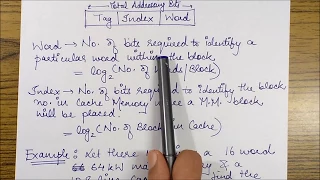 Total Addressing Bits
Tag Index Word
Word → No. of bits required to identify a
particular word within the block
= log₂ (No. of ds/Block)
Index → No. of bits required to identify the block
no. in Cache Memory where a M.M. block
will be placed.
= log₂ (No. of Block in Cache)
Example: Let there a 16 word
64 kW ma & a
find the